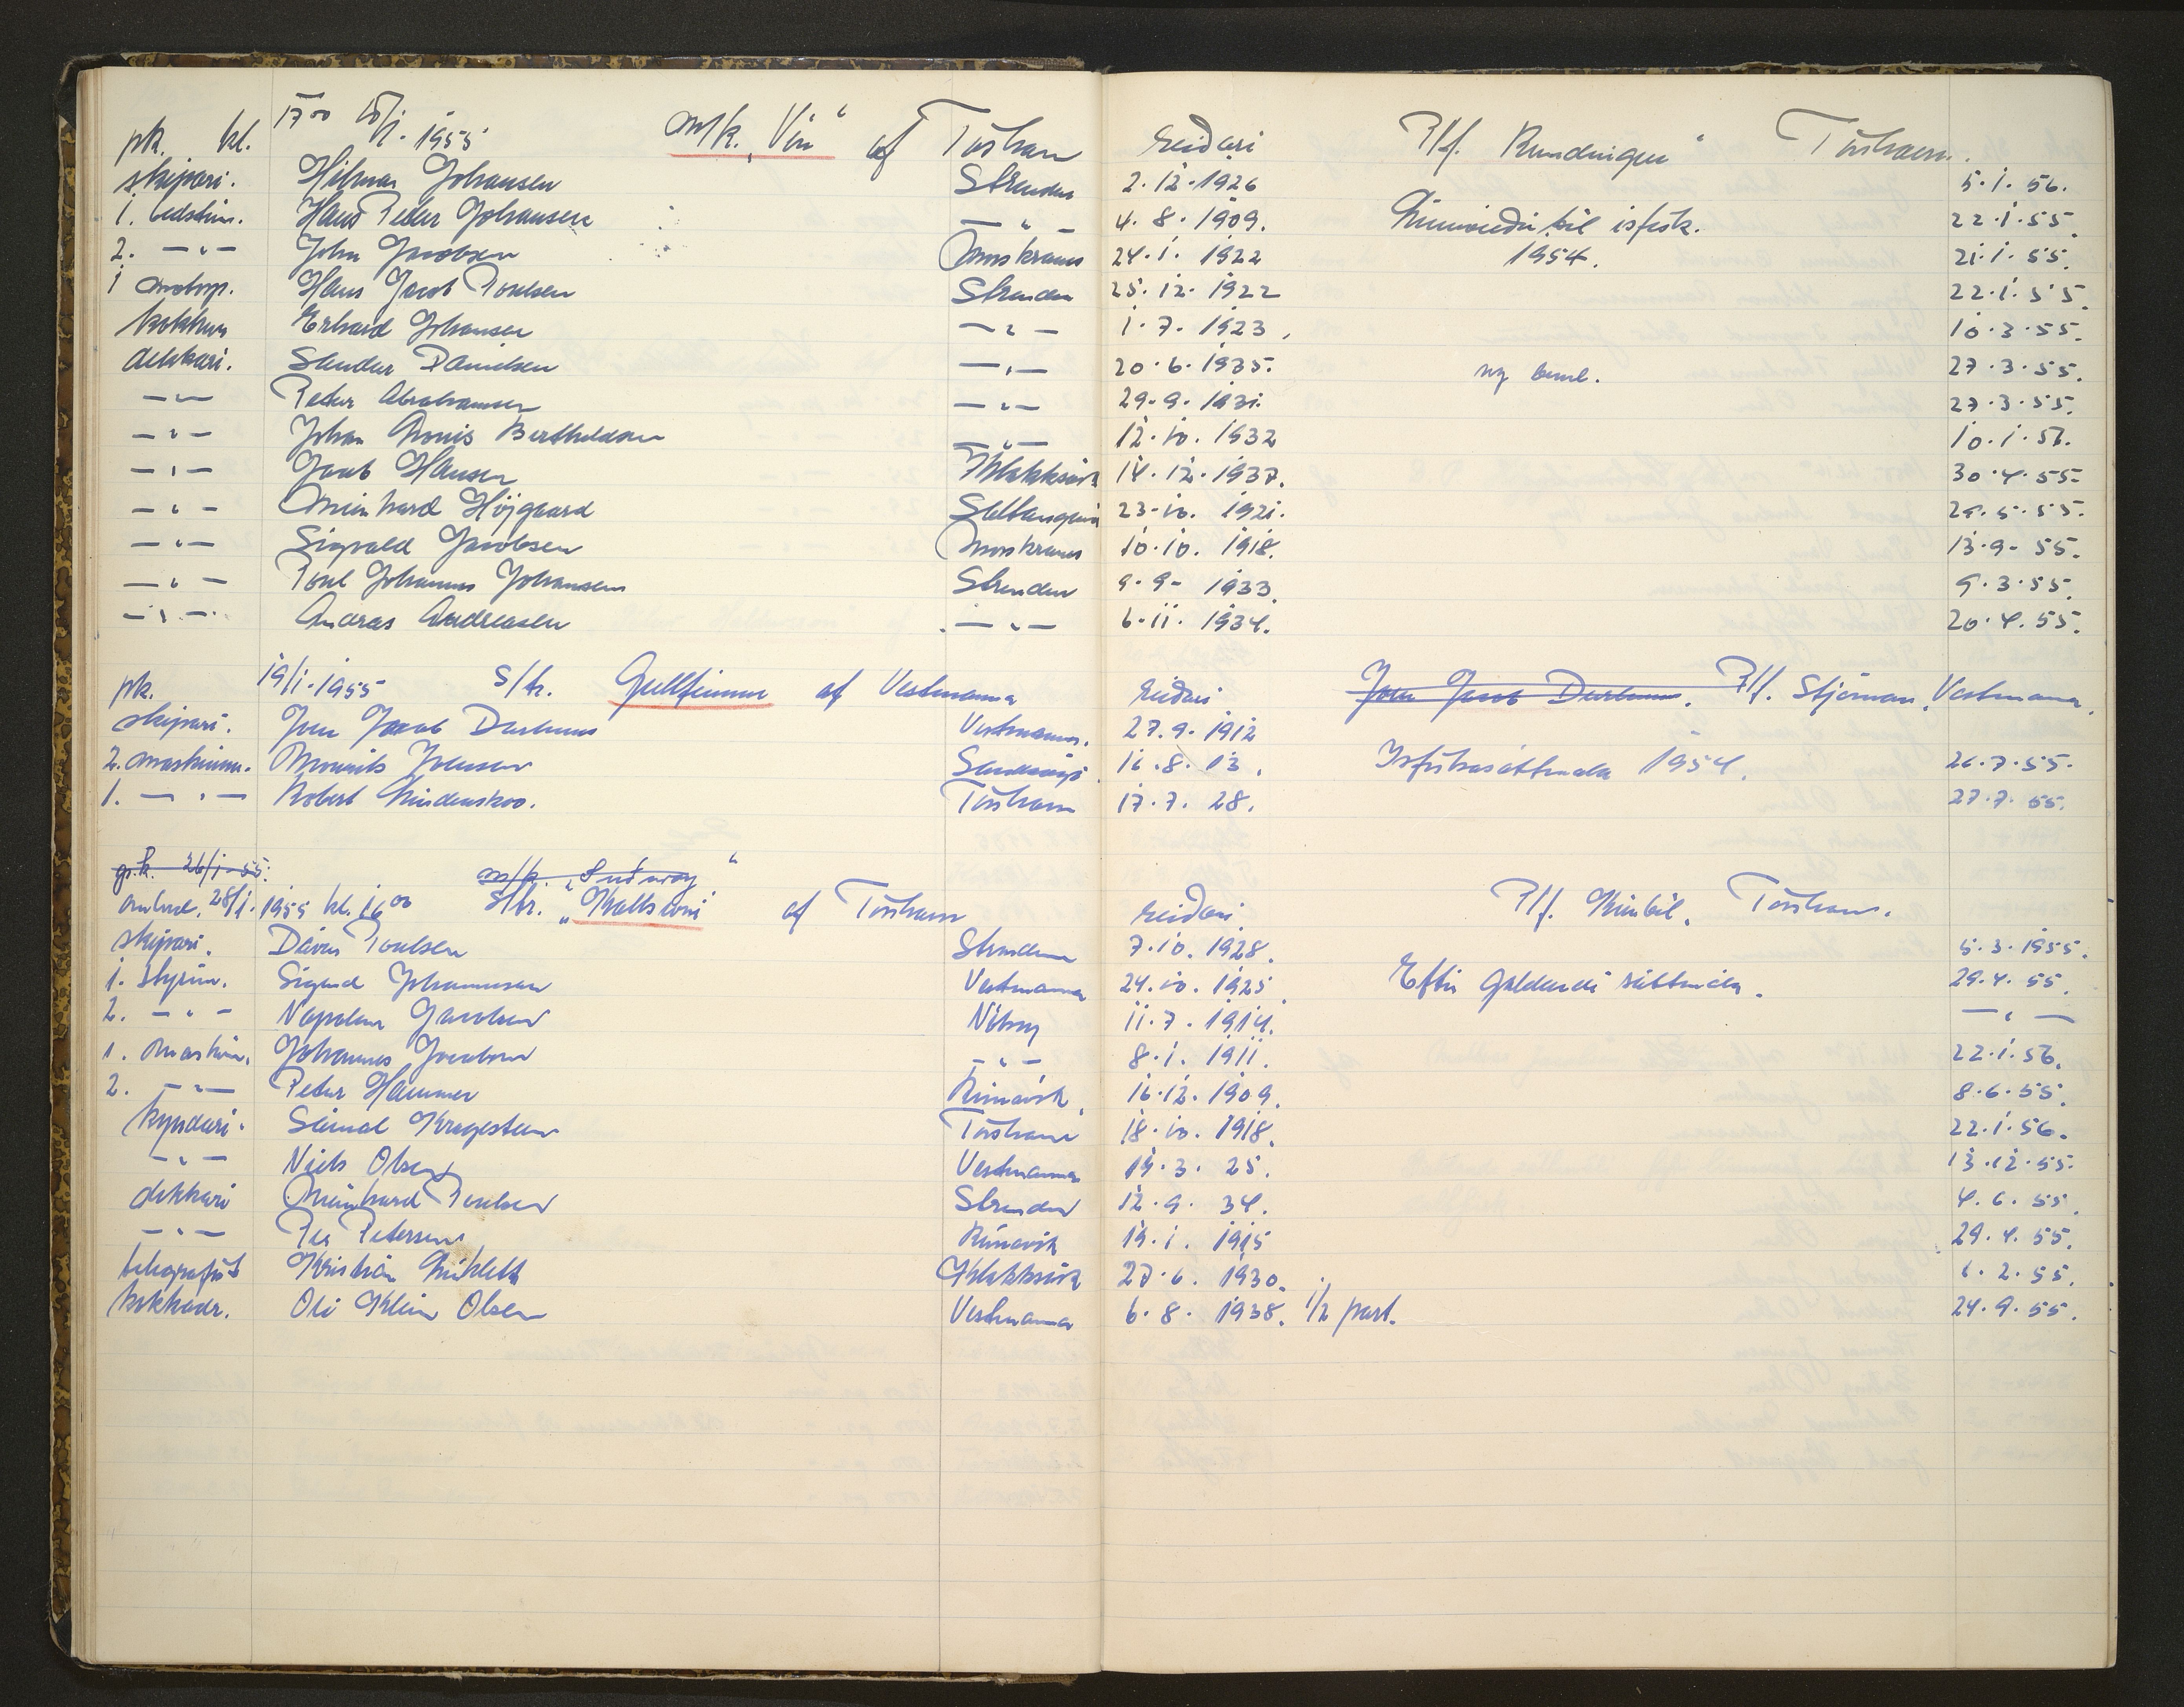 pk. kl. 1700 18/1. 1955 m/k. „Vón" af Tórshavn reiðari P/f. Rundingur" Tórshavn.
skipari. Hilmar Johansen Strendur 2.12.1926 5.1.56.
1. bedstim. Hans Peter Johansen — " — 4.8.1909. til isfisk. 22.1.55.
2. — " — John Jacobsen Morskranes 24.1.1922 1954. 21.1.55.
1 motorp. Hans Jacob Poulsen Strendur 25.12.1922 22.1.55.
kokkur Erhard Johansen — " — 1.7.1923. 10.3.55.
dekkari. Sandur Danielsen — " — 20.6.1935. ny 27.3.55.
— " — Peter Abrahamsen — " — 29.9.1931. 27.3.55.
— " — Johan Monis Bertholdsen — " — 12.10.1932 10.1.56.
— " — Jacob Hansen Klakksvík 14.12.1937. 30.4.55.
— " — Meinhard Højgaard Saltangará 23.10.1921. 24.5.55.
— " — Sigvald Jacobsen Morskranes 10.10.1918. 13.9.55.
— " — Poul Johannus Johansen Strendur 9.9.1933. 9.3.55.
— " — Andras Andreasen — " — 6.11.1934. 20.4.55.
pk. 19/1.1955 S/tr. Gullfinnur af Vestmanna reiðari Joen Jacob Durhuus. P/f. Stjørnan, Vestmanna.
skipari. Joen Jacob Durhuus Vestmanna. 27.9.1912
2. maskinm. Mourits Joensen Sandavági 16.8.13. Isfiskasáttmála 1954. 26.7.55.
1. — " — Robert Lindenskov. Tórshavn 17.7.28. 27.7.55.
pk. 26/1-55. m/k. „Suðuroy"
28/1. 1955 kl. 1600 S/tr. „Kallsoni" af Tórshavn reiðari P/f. Kimbil. Tórshavn.
skipari. Dávur Poulsen Strendur 7.10.1928. 5.3.1955.
1. styrim. Sigurd Johannesen Vestmanna 24.10.1925. Eftir galdandi sáttmála. 29.4.55.
2. — " — Napoleon Jacobsen Nólsoy 11.7.1914. — " —
1. maskin. Johannes Jacobsen — " — 8.1.1911. 22.1.56.
2. — " — Peter Hammer Runavík. 16.12.1909. 8.6.55.
kyndari. Sámal Krogesteen Tórshavn 18.10.1918. 22.1.56.
— " — Niels Olsen Vestmanna 19.3.25. 13.12.55.
dekkari Meinhard Poulsen Strendur 12.9.34. 4.6.55.
— " — Per Petersen Runavík 19.1.1915 29.4.55.
telegrafist Kristian Klakksvík 27.6.1930. 6.2.55.
kokkadr. Oli Klein Olsen Vestmanna 6.8.1938. 1/2 part. 24.9.55.